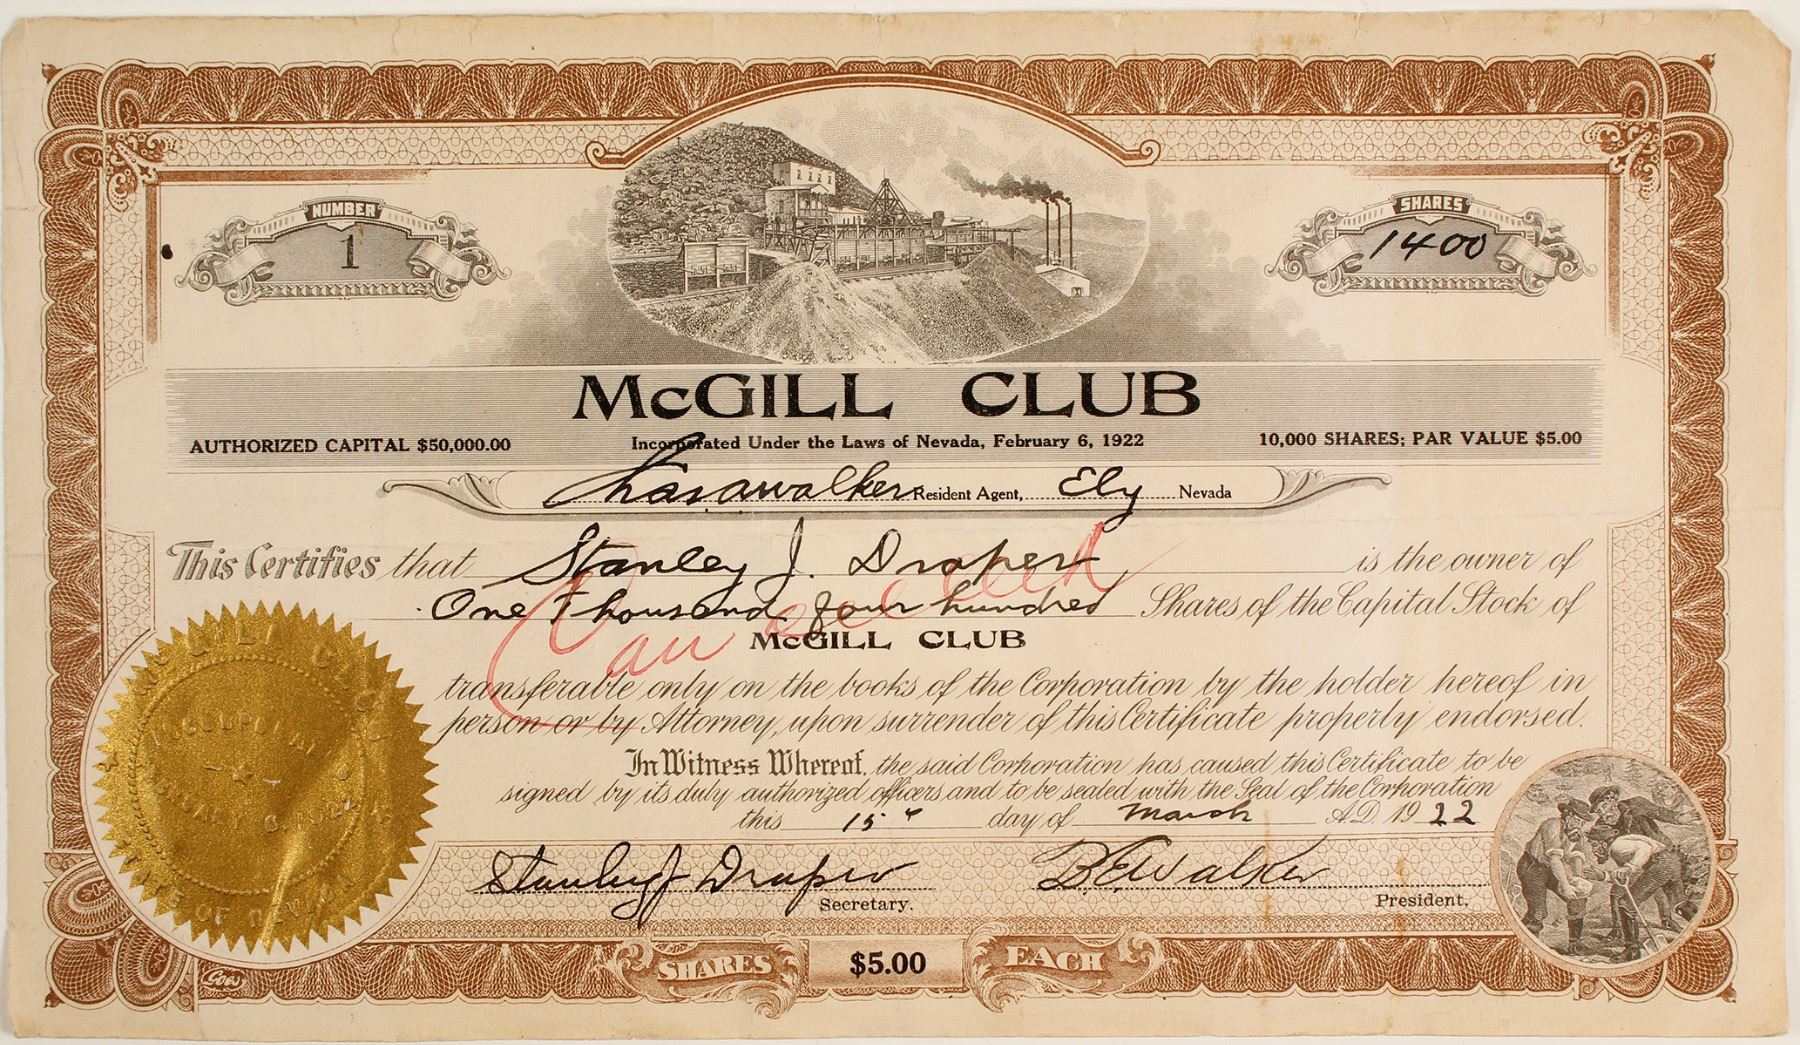 NUMBER
1
SHARES
1400
McGILL CLUB
AUTHORIZED CAPITAL $50,000.00
Incorporated Under the Laws of Nevada, February 6, 1922
10,000 SHARES; PAR VALUE $5.00
Chas. A. Walker Resident Agent, Ely Nevada
This Certifies that Stanley J. Draper is the owner of
One Thousand four hundred Shares of the Capital Stock of
Cancelled
McGILL CLUB
transferable only on the books of the Corporation by the holder hereof in
person or by Attorney, upon surrender of this Certificate properly endorsed.
In Witness Whereof, the said Corporation has caused this Certificate to be
signed by its duly authorized officers and to be sealed with the Seal of the Corporation
this 15" day of March A.D. 1922
Stanley J Draper B.E. Walker
Secretary. President.
SHARES $5.00 EACH
Goes
McGILL CLUB
INCORPORATED
FEBRUARY 6, 1922
STATE OF NEVADA